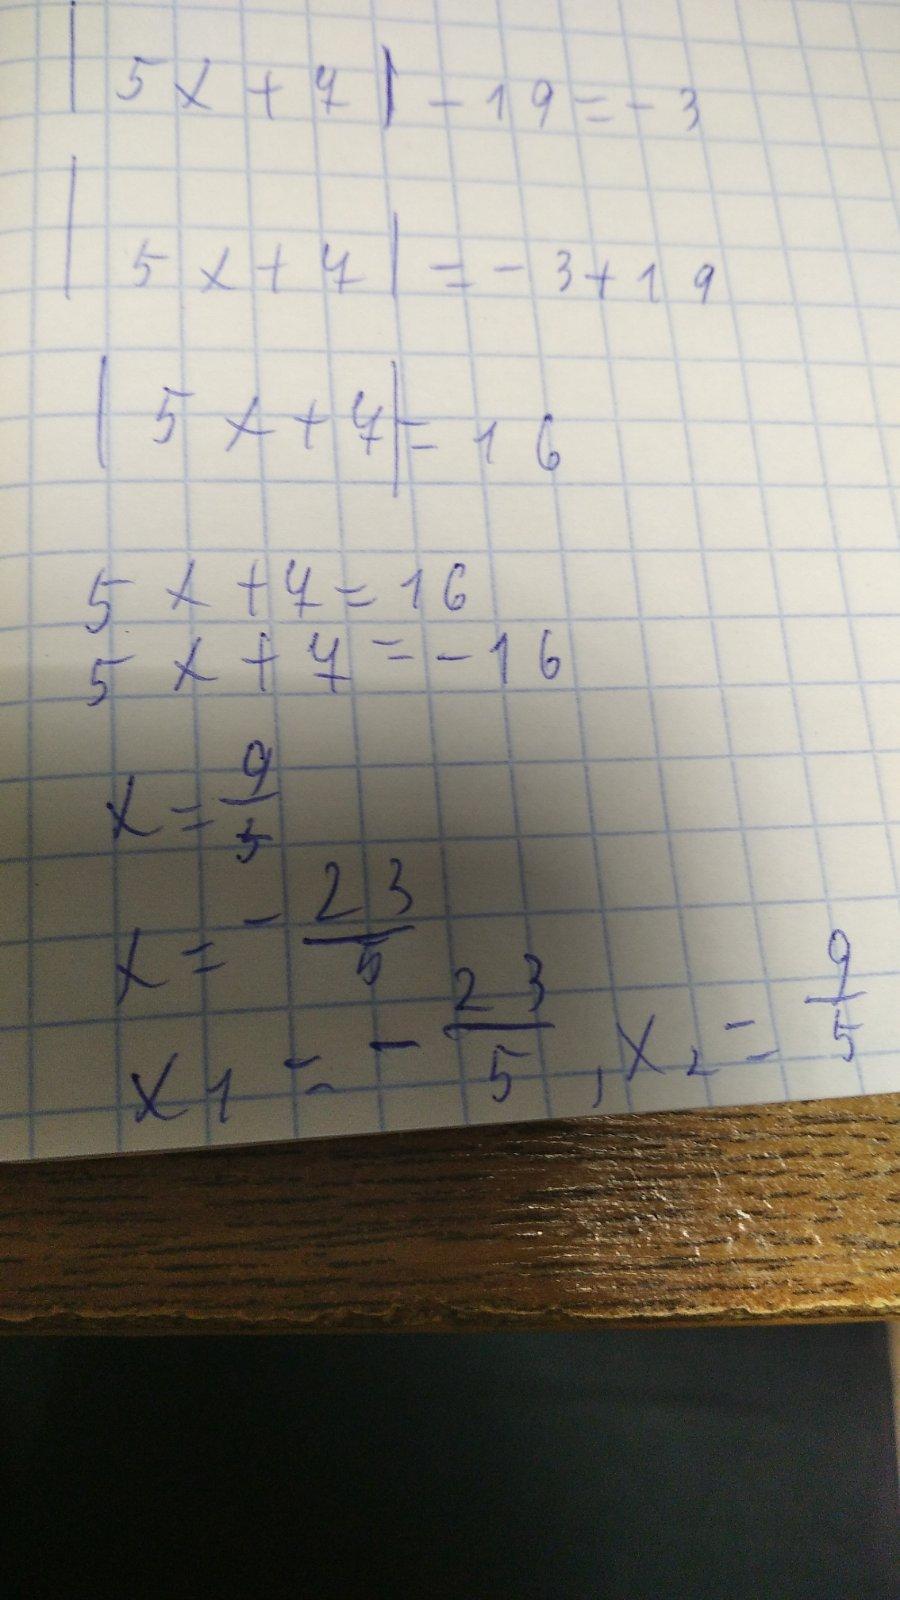 |5x+7|-19=-3
|5x+7|=-3+19
|5x+7|=16
5x+7=16
5x+7=-16
x=9/5
x=-23/5
x1=-23/5, x2=9/5